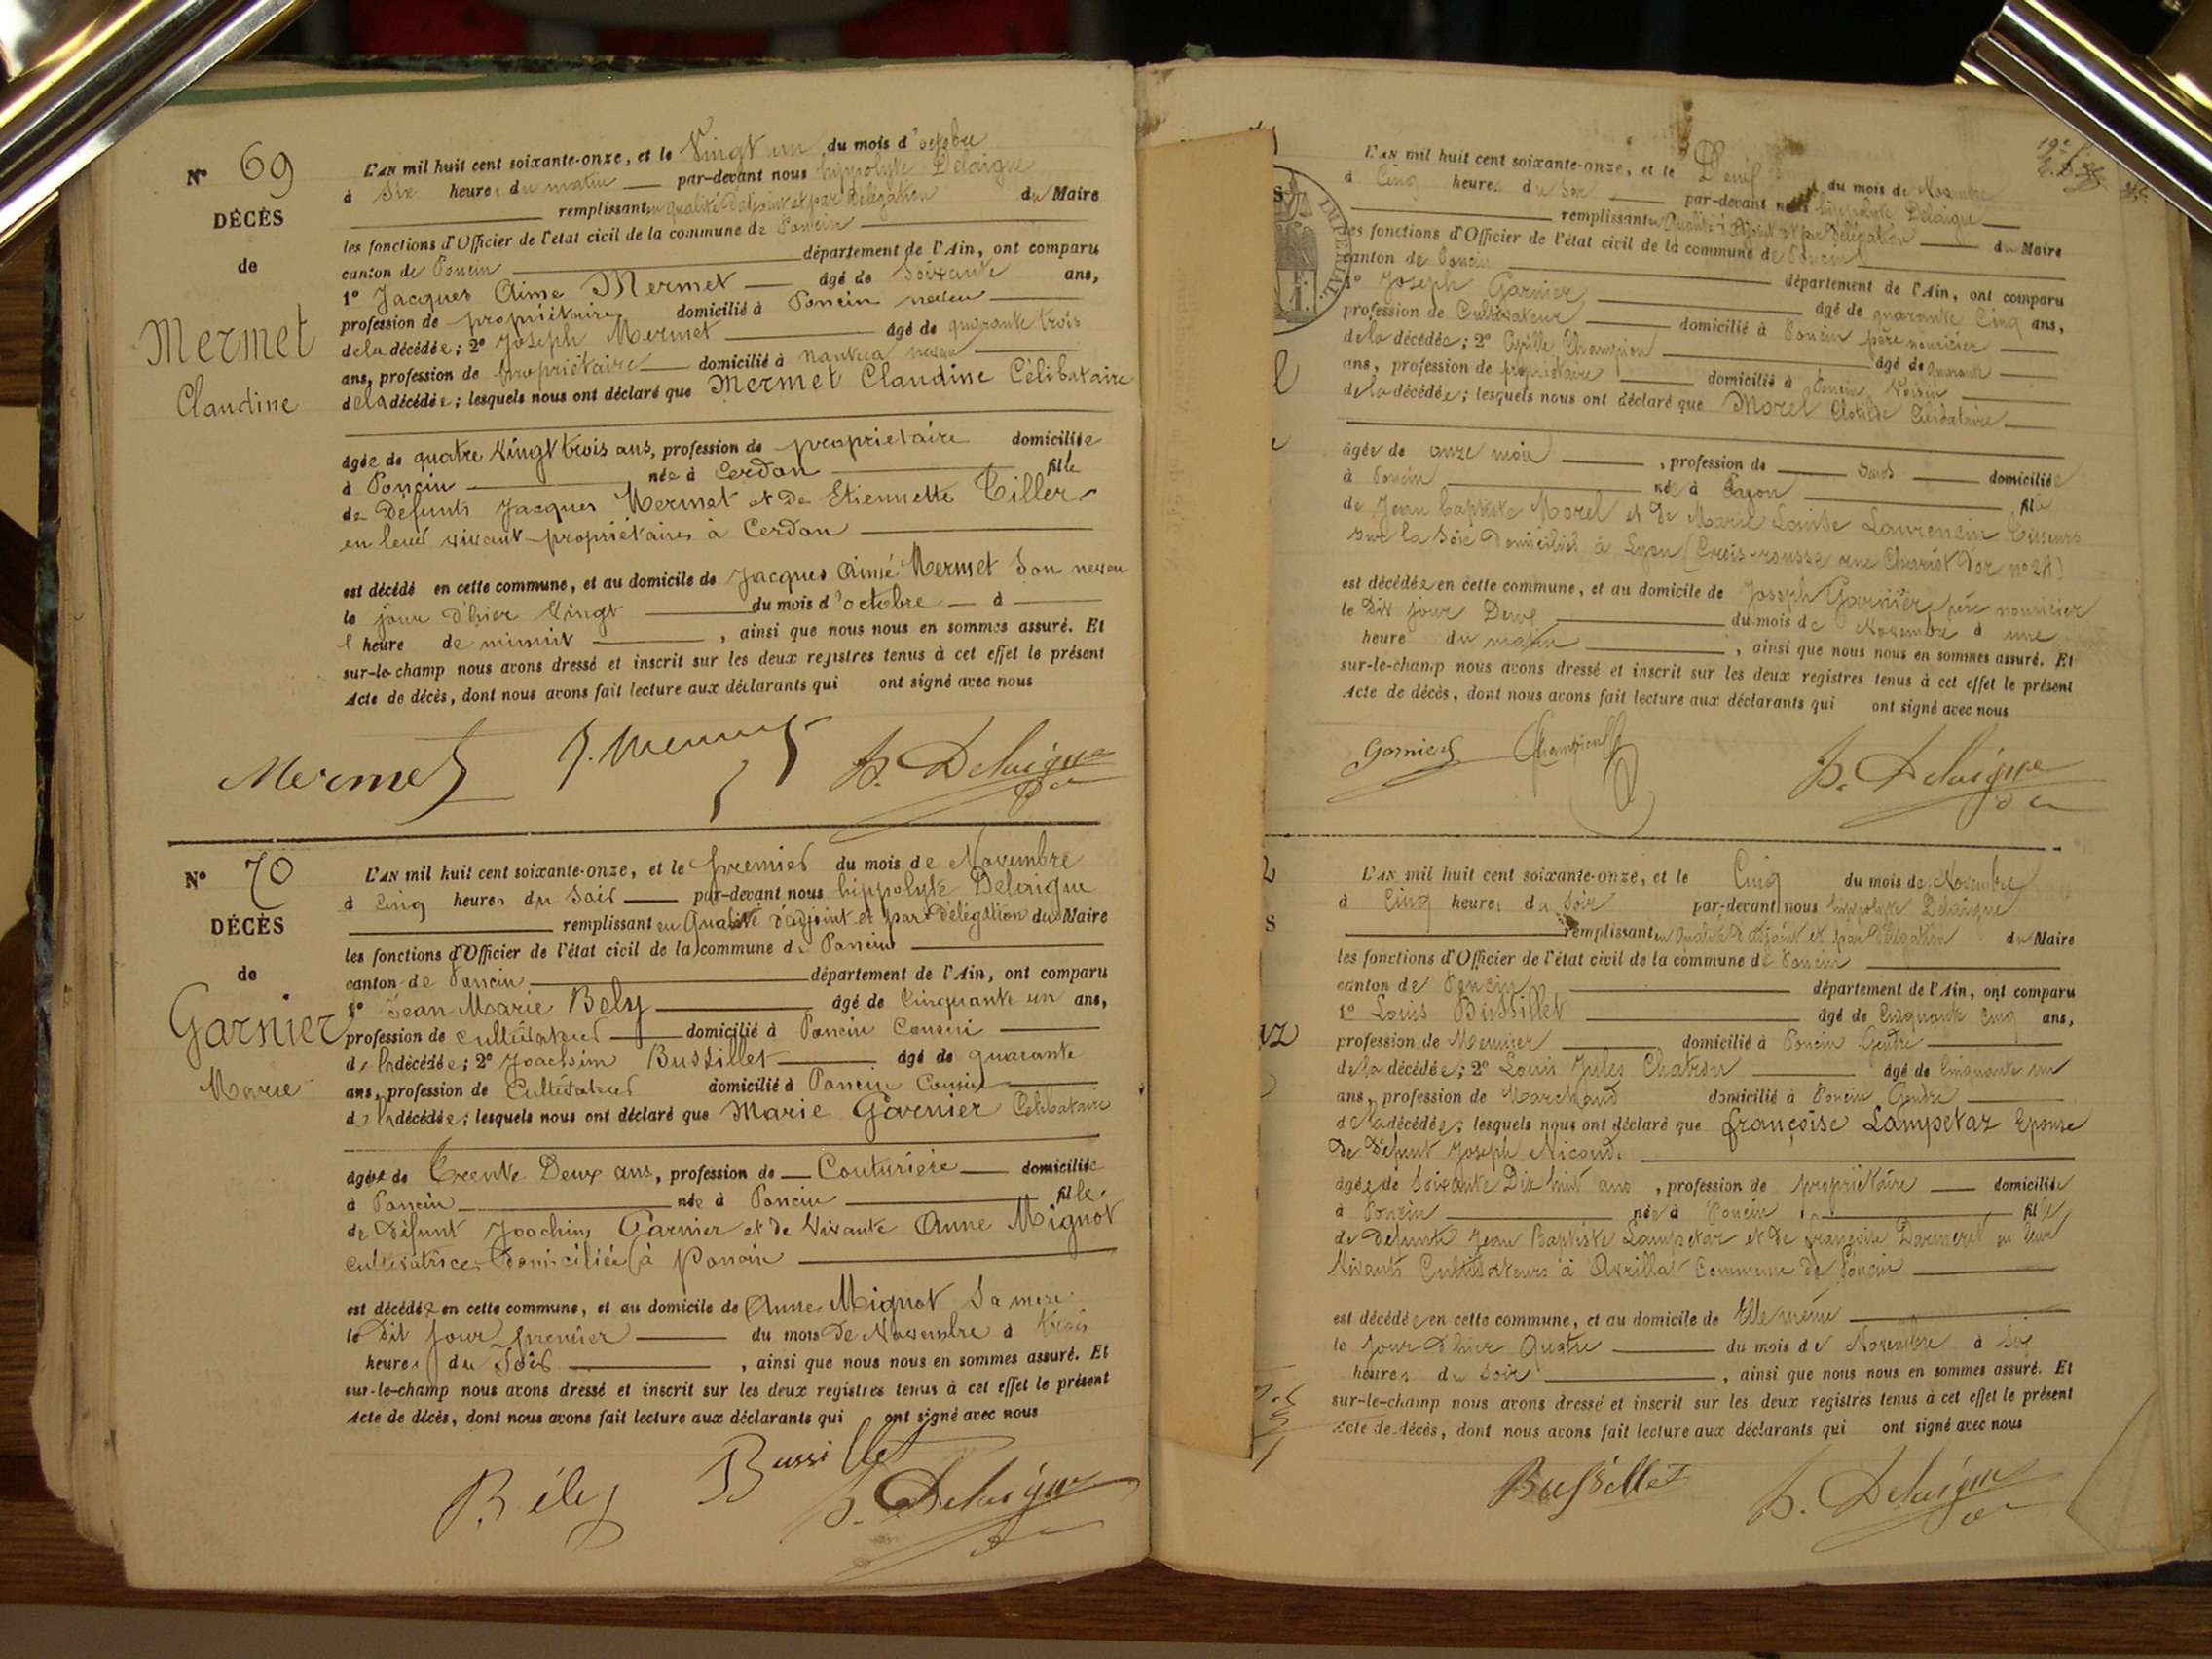 N° 69
DÉCÈS
de
Mermet
Claudine
L'AN mil huit cent soixante-onze, et le Vingt un du mois d'octobre
à Six heures du matin par-devant nous hippolyte Delaigue
remplissant en qualité d'adjoint et par délégation du Maire
les fonctions d'Officier de l'état civil de la commune de Poncin
canton de Poncin département de l'Ain, ont comparu
1° Jacques Aimé Mermet âgé de soixante ans,
profession de propriétaire domicilié à Poncin neveu
de la décédée; 2° Joseph Mermet âgé de quarante trois
ans, profession de propriétaire domicilié à nantua neveu
de la décédée; lesquels nous ont déclaré que Mermet Claudine Célibataire
âgée de quatre Vingt trois ans, profession de propriétaire domiciliée
à Poncin née à Cerdon fille
de Défunts Jacques Mermet et de Etiennette Tiller
en leur vivant propriétaires à Cerdon
est décédé en cette commune, et au domicile de Jacques Aimé Mermet Son neveu
le jour d'hier Vingt du mois d'octobre à
l heure de minuit , ainsi que nous nous en sommes assuré. Et
sur-le-champ nous avons dressé et inscrit sur les deux registres tenus à cet effet le présent
Acte de décès, dont nous avons fait lecture aux déclarants qui ont signé avec nous
Mermet J. Mermet h. Delaigue
N° 70
DÉCÈS
de
Garnier
Marie
L'AN mil huit cent soixante-onze, et le premier du mois de Novembre
à Cinq heures du Soir par-devant nous hippolyte Delaigue
remplissant en Qualité d'adjoint et par délégation du Maire
les fonctions d'Officier de l'état civil de la commune de Poncin
canton de Poncin département de l'Ain, ont comparu
1° Jean Marie Bely âgé de Cinquante un ans,
profession de cultivateur domicilié à Poncin Cousin
de la décédée; 2° Joachim Bussillet âgé de quarante
ans, profession de Cultivateur domicilié à Poncin Cousin
de la décédée; lesquels nous ont déclaré que Marie Garnier Célibataire
âgée de Trente Deux ans, profession de Couturière domiciliée
à Poncin née à Poncin fille
de Défunt Joachim Garnier et de Vivante Anne Mignot
Cultivatrice domiciliée à Poncin
est décédée en cette commune, et au domicile de Anne Mignot Sa mère
le Dit Jour premier du mois de Novembre à trois
heures du Soir , ainsi que nous nous en sommes assuré. Et
sur-le-champ nous avons dressé et inscrit sur les deux registres tenus à cet effet le présent
Acte de décès, dont nous avons fait lecture aux déclarants qui ont signé avec nous
Bély Bussillet h. Delaigue
IMPERIAL
L'AN mil huit cent soixante-onze, et le Deux du mois de Novembre
à Cinq heures du Soir par-devant nous hippolyte Delaigue
remplissant en Qualité d'adjoint et par délégation du Maire
les fonctions d'Officier de l'état civil de la commune de Poncin
canton de Poncin département de l'Ain, ont comparu
1° Joseph Garnier âgé de quarante Cinq ans,
profession de Cultivateur domicilié à Poncin père nourricier
de la décédée; 2° Champion âgé de quarante
ans, profession de propriétaire domicilié à Poncin Voisin
de la décédée; lesquels nous ont déclaré que Morel Clotilde Célibataire
âgée de onze mois , profession de Sans domiciliée
à Poncin née à Layon fille
de Jean baptiste Morel et de Marie Louise Laurencin Tisseurs
sur la Soie domiciliés à Lyon (Croix-rousse rue Chariot d'or n° 24)
est décédée en cette commune, et au domicile de Joseph Garnier père nourricier
le Dit jour Deux du mois de Novembre à une
heure du matin , ainsi que nous nous en sommes assuré. Et
sur-le-champ nous avons dressé et inscrit sur les deux registres tenus à cet effet le présent
Acte de décès, dont nous avons fait lecture aux déclarants qui ont signé avec nous
Garnier Champion h. Delaigue
L'AN mil huit cent soixante-onze, et le Cinq du mois de Novembre
à Cinq heures du Soir par-devant nous hippolyte Delaigue
remplissant en Qualité d'adjoint et par délégation du Maire
les fonctions d'Officier de l'état civil de la commune de Poncin
canton de Poncin département de l'Ain, ont comparu
1° Louis Bussillet âgé de Cinquante Cinq ans,
profession de Meunier domicilié à Poncin Gendre
de la décédée; 2° Louis Jules Chatron âgé de Cinquante un
ans, profession de Marchand domicilié à Poncin Gendre
de la décédée; lesquels nous ont déclaré que françoise Lampetaz Epouse
de Défunt Joseph Nicoud
âgée de Soixante Dix huit ans , profession de propriétaire domiciliée
à Poncin née à Poncin fille
de Défunts Jean Baptiste Lampetaz et de françoise Darmeret en leur
Vivants Cultivateurs à Avrillat Commune de Poncin
est décédée en cette commune, et au domicile de Elle même
le Jour d'hier Quatre du mois de Novembre à Six
heures du Soir , ainsi que nous nous en sommes assuré. Et
sur-le-champ nous avons dressé et inscrit sur les deux registres tenus à cet effet le présent
Acte de décès, dont nous avons fait lecture aux déclarants qui ont signé avec nous
Bussillet h. Delaigue